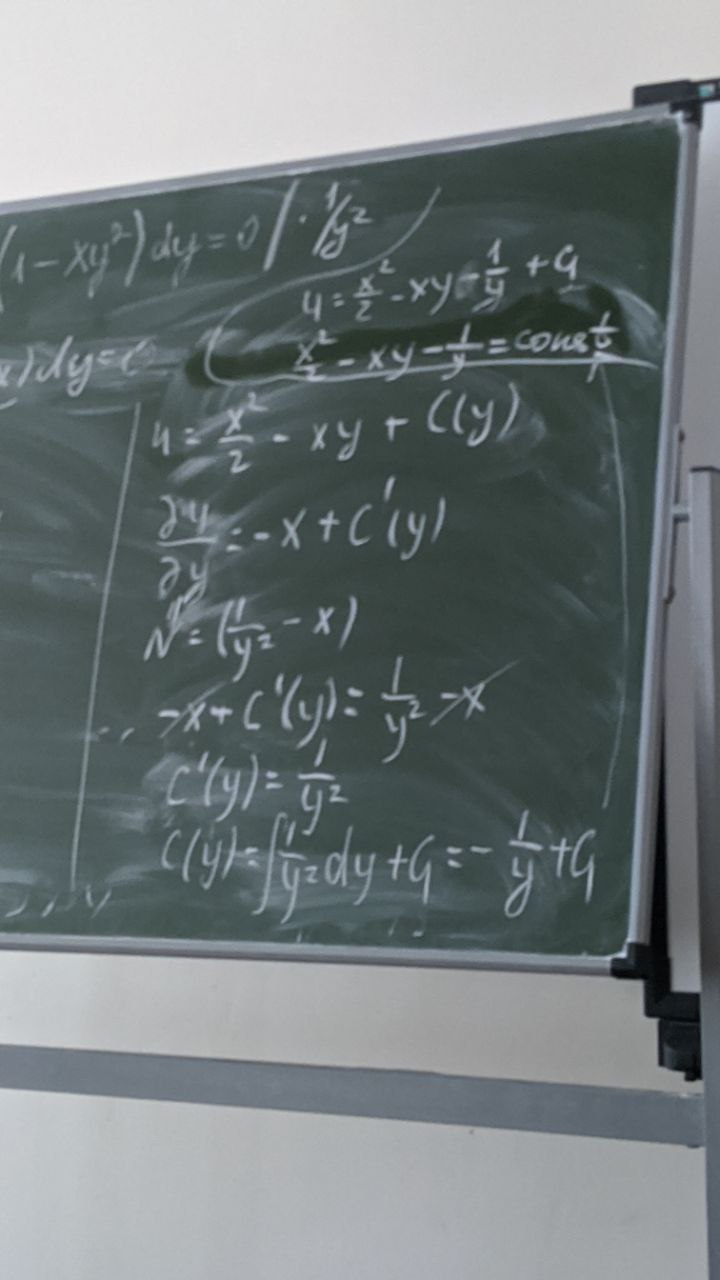 (1-xy²)dy=0 / · 1/y²
u = x²/2 - xy - 1/y + C₁
x)dy=0
x²/2 - xy - 1/y = const
u = x²/2 - xy + C(y)
∂u/∂y = -x + C'(y)
N = (1/y² - x)
-x + C'(y) = 1/y² - x
C'(y) = 1/y²
C(y) = ∫ 1/y² dy + C₁ = - 1/y + C₁